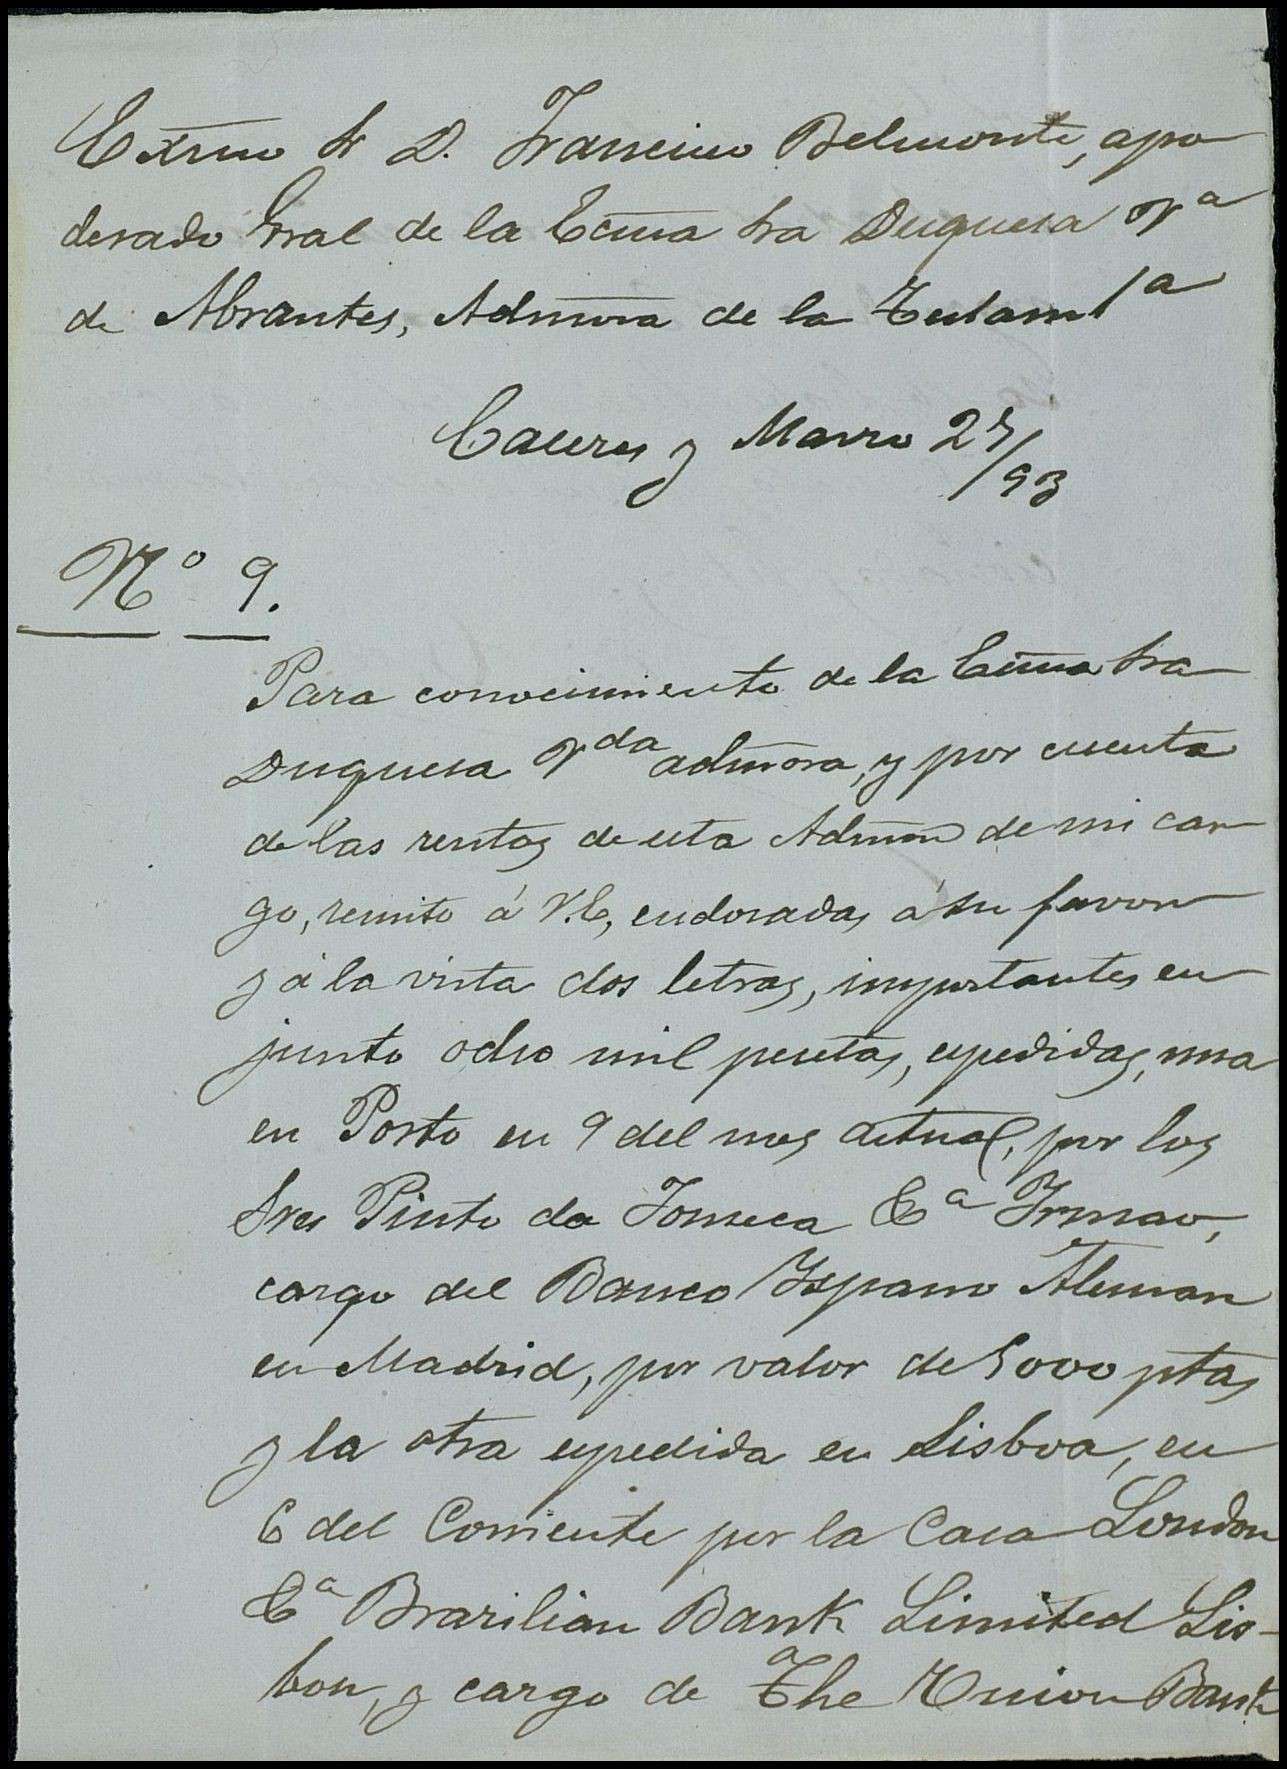 Exmo Sr D. Francisco Belmonte, apo
derado Gral de la Ecma Sra Duquesa Va
de Abrantes, Admora de la Testamta
Caceres y Marzo 27/93
No 9.
Para conocimiento de la Ecma Sra
Duquesa Vda admora, y por cuenta
de las rentas de esta Admon de mi car
go, remito á V.E, endosadas á su favor
y á la vista dos letras, importantes en
junto ocho mil pesetas, espedidas, una
en Porto en 9 del mes actual, por los
Sres Pinto da Fonseca & Irmao,
cargo del Banco Ispano Aleman
en Madrid, por valor de 5000 ptas
y la otra espedida en Lisboa, en
6 del Corriente por la Casa London
& Brazilian Bank Limited Lis-
bon, y cargo de The Union Bank